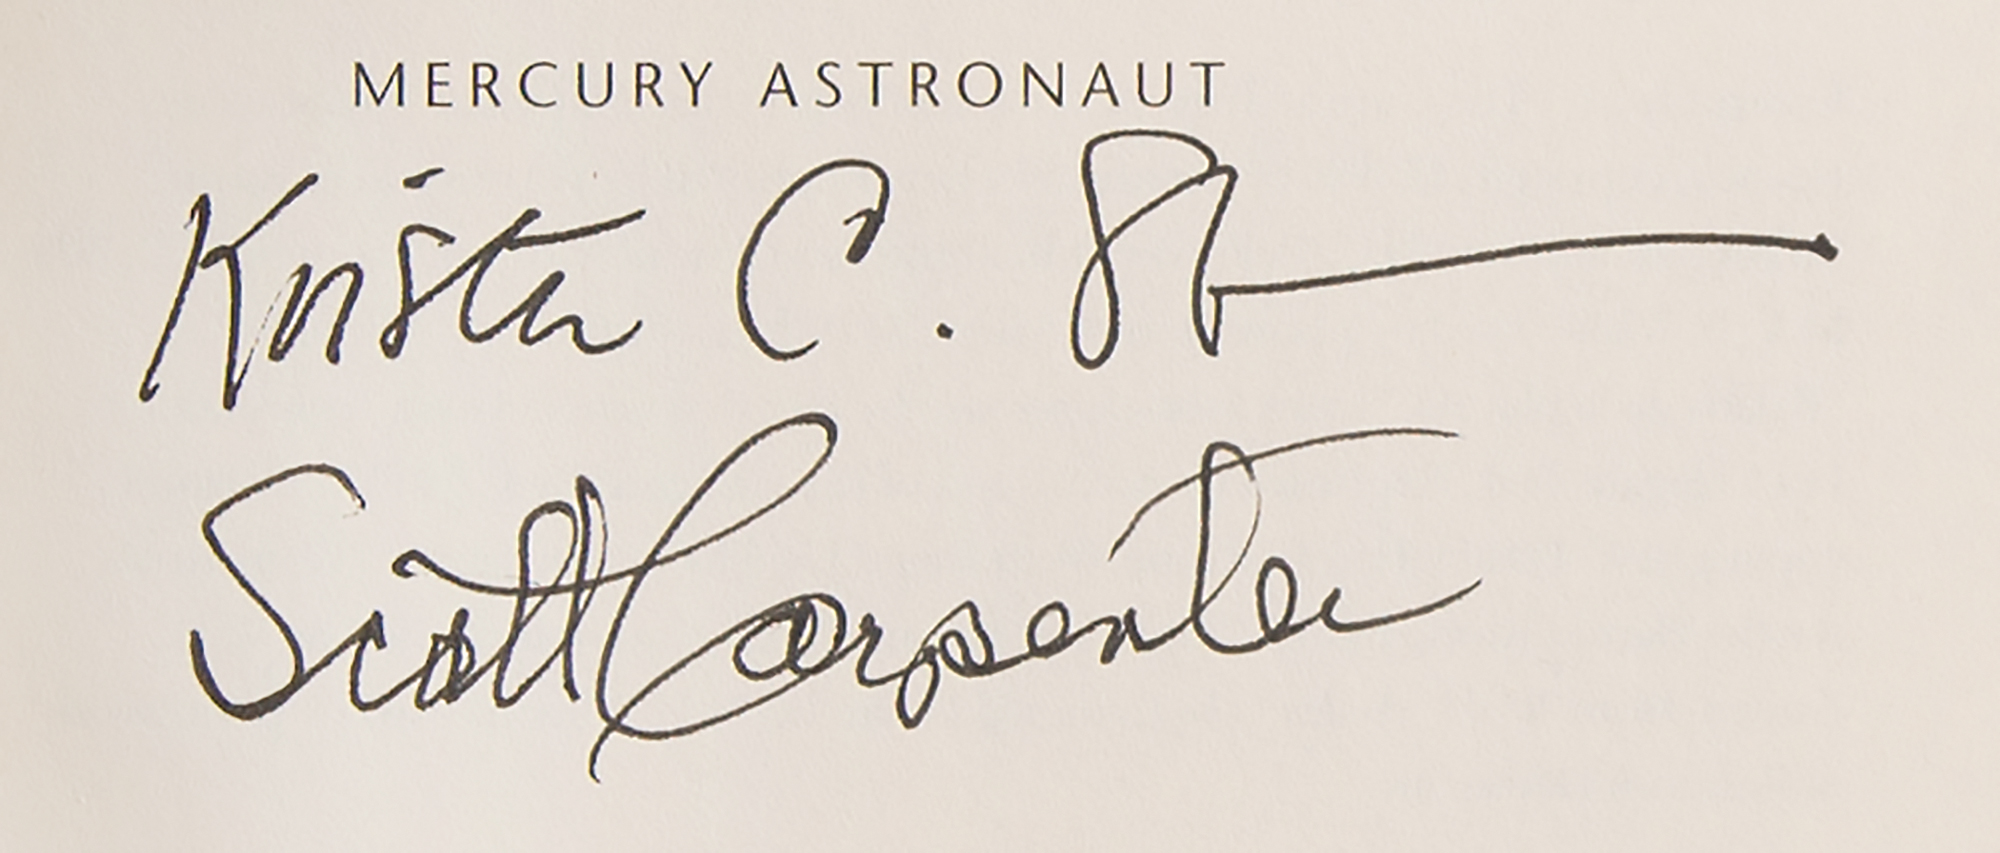 MERCURY ASTRONAUT
Kristen C. St
Scott Carpenter